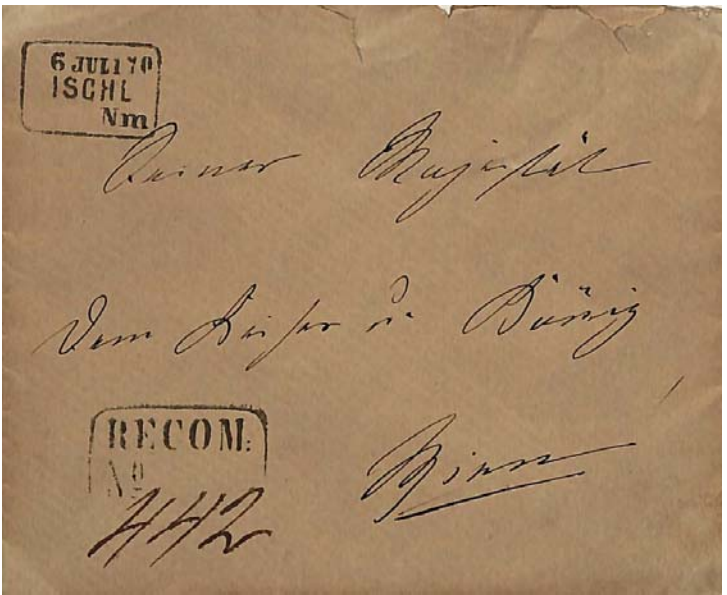 6 JULI 70
ISCHL
Nm
Seiner Majestät
Dem Kaiser u. König
RECOM:
Nº
442
Wien